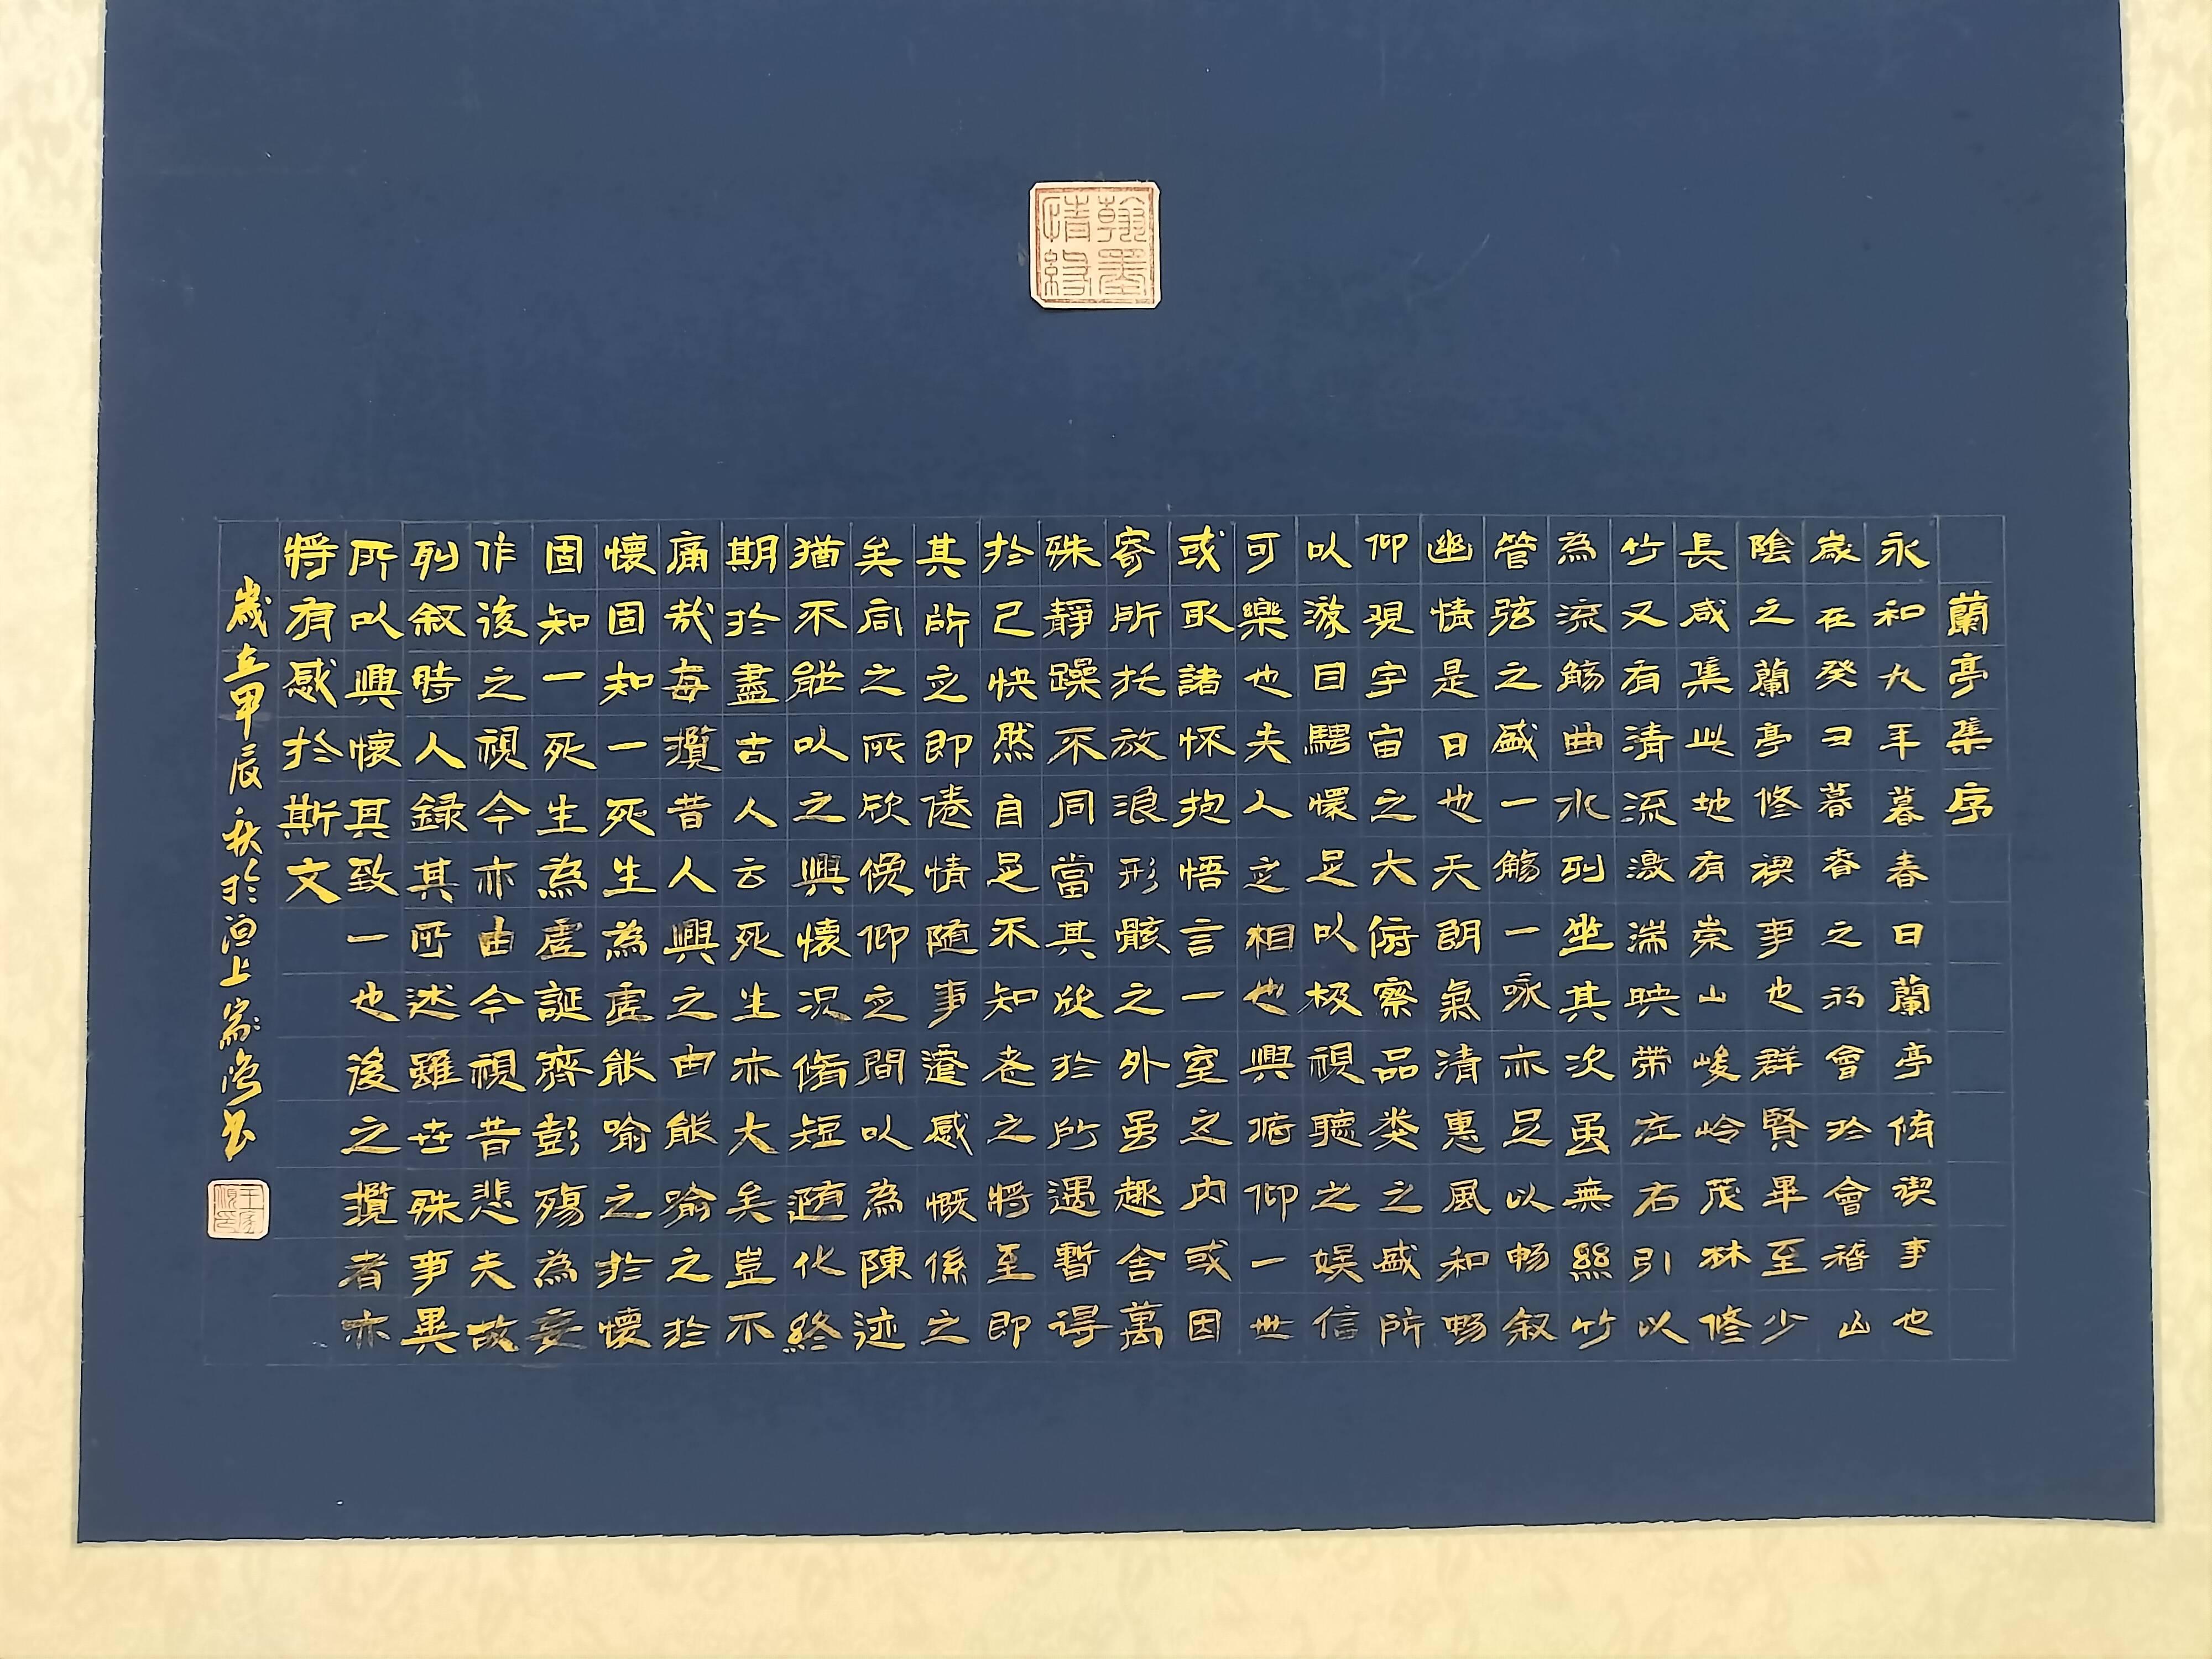 翰墨情緣
蘭亭集序
永和九年暮春日蘭亭脩禊事也
歲在癸丑暮春之初會於會稽山
陰之蘭亭修禊事也群賢畢至少
長咸集此地有崇山峻岭茂林修
竹又有清流激湍映帶左右引以
為流觴曲水列坐其次虽無絲竹
管弦之盛一觴一咏亦足以畅叙
幽情是日也天朗氣清惠風和畅
仰观宇宙之大俯察品类之盛所
以游目騁懷足以极視聽之娱信
可樂也夫人之相也興俯仰一世
或取諸怀抱悟言一室之内或因
寄所托放浪形骸之外虽趣舍萬
殊靜躁不同當其欣於所遇暫得
於己快然自足不知老之將至即
其所之即倦情随事遷感慨係之
矣向之所欣俛仰之間以為陳迹
猶不能以之興懷況脩短随化終
期於盡古人云死生亦大矣豈不
痛哉每攬昔人興之由能喻之於
懷固知一死生為虛能喻之於懷
固知一死生為虛誕齊彭殤為妄
作後之視今亦由今視昔悲夫故
列叙時人録其所述雖世殊事異
所以興懷其致一也後之攬者亦
將有感於斯文
歲在甲辰秋於洹上家書